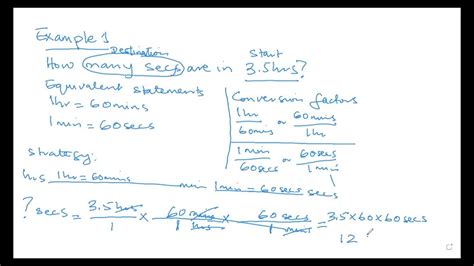 Example 1
Destination Start
How many secs are in 3.5hrs?
Equivalent statements
1hr = 60mins
1min = 60secs
Conversion factors
1hr/60mins or 60mins/1hr
1min/60secs or 60secs/1min
strategy:
hrs 1hr = 60mins min 1min = 60secs secs
? secs = 3.5hrs/1 × 60mins/1hrs × 60secs/1min = 3.5×60×60secs
12